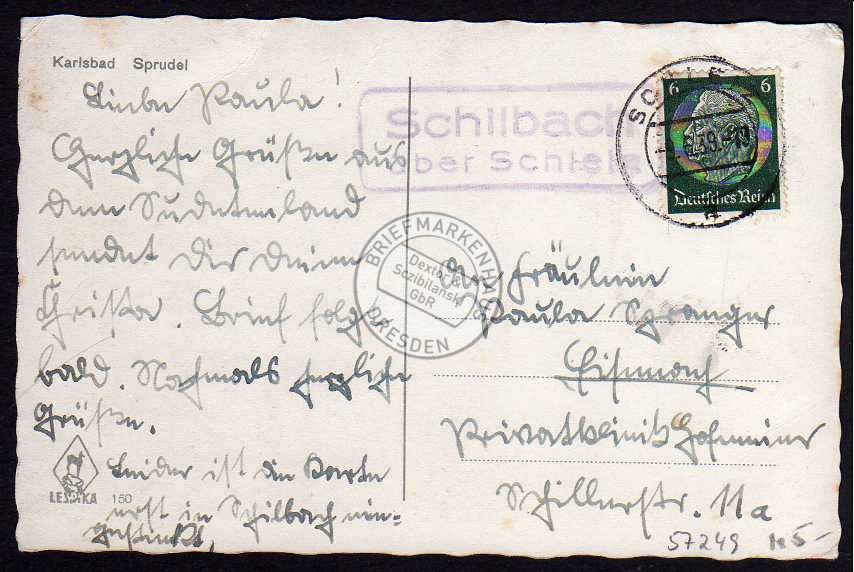 Karlsbad Sprudel
Liebe Paula!
Herzliche Grüßen aus
dem Sudetenland
sendet Dir Deine
Christa. Brief folgt
bald. Nochmals herzliche
Grüßen.
Leider ist die Karte
erst in Schilbach ein=
gesteckt.
LESTKA 150
Schilbach
über Schleiz
SCHLE
6 6
.39.-19
Deutsches Reich
a
BRIEFMARKENHAUS
Dextor &
Scibilanski
GbR
DRESDEN
Fräulein
Paula Spranger
Eisenach
Privatklinik
Schillerstr. 11a
57249 5-